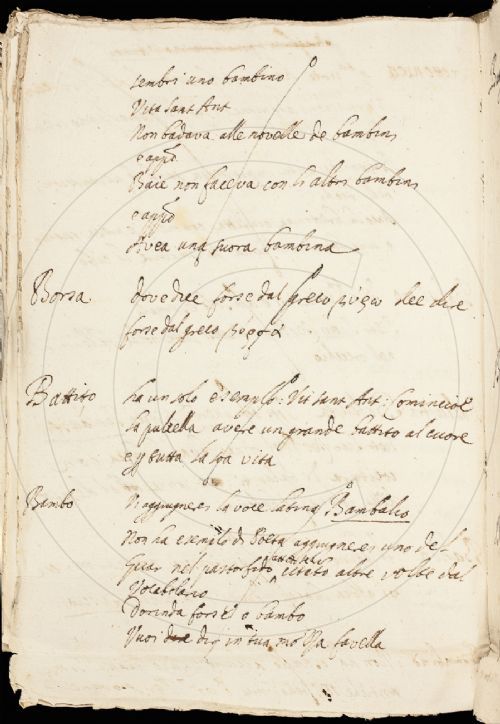 sembri uno bambino
Vita Sant Ant
Non badava alle novelle de bambini
e appo
Baie non faceva con li altri bambini
e appo
Avea una suora bambina
Borsa dove dice forse dal greco dee dire
forse dal greco
Battito ha un solo esemplo: Vit Sant Ant: Cominciò
la pulcella avere un grande battito al cuore
e tutta la vita
Bambo Naggiugnerei la voce latina Bambalio
Non ha esemplo di Poeta aggiugnerei uno del
Guar nel pastorfido citato altre volte dal
Vocabolario
Dorinda forse o bambo
Vuoi dir in tua favella